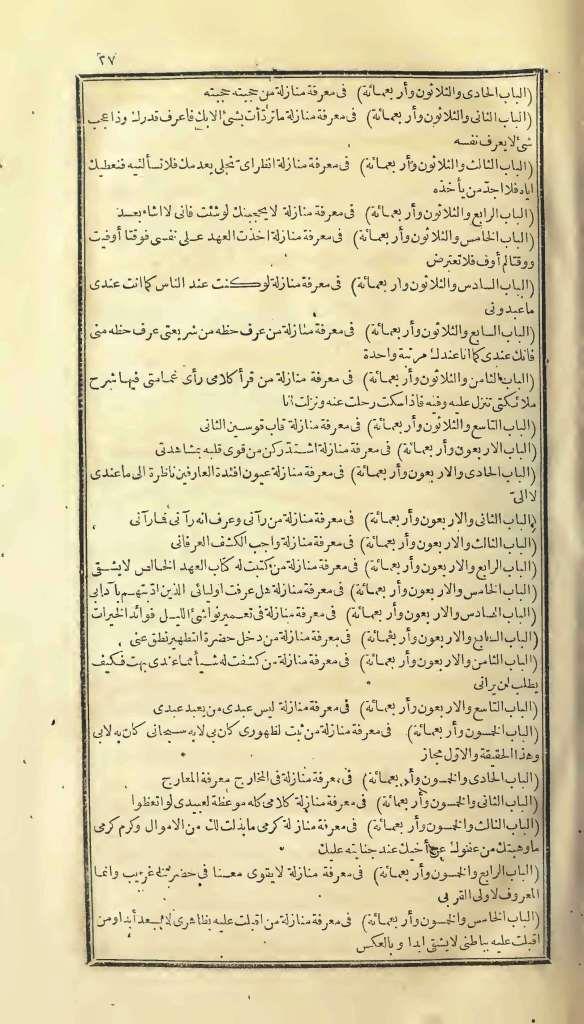 ٢٧
(الباب الحادى والثلاثون وأربعمائة) فى معرفة منازلة من حجبته حجبته
(الباب الثانى والثلاثون وأربعمائة) فى معرفة منازلة ماترديت بشئ الا بك فاعرف قدرك وذا عجب
شئ لا يعرف نفسه
(الباب الثالث والثلاثون وأربعمائة) فى معرفة منازلة انظر اى تجلى يعدمك فلا تسألنيه فنعطيك
اياه فلا اجد من يأخذه
(الباب الرابع والثلاثون وأربعمائة) فى معرفة منازلة لا يحجبنك لو شئت فانى لا اشاء بعد
(الباب الخامس والثلاثون وأربعمائة) فى معرفة منازلة اخذت العهد على نفسى فوقتا أوفيت
ووقتا لم أوف فلا تعترض
(الباب السادس والثلاثون وأربعمائة) فى معرفة منازلة لو كنت عند الناس كما انت عندى
ما عبدونى
(الباب السابع والثلاثون وأربعمائة) فى معرفة منازلة من عرف حظه من شريعتى عرف حظه منى
فانك عندى كما انا عندك مرتبة واحدة
(الباب الثامن والثلاثون وأربعمائة) فى معرفة منازلة من قرأ كلامى رأى غمامتى فيها سرح
ملائكتى تنزل عليه وفيه فاذا سكت رحلت عنه ونزلت انا
(الباب التاسع والثلاثون وأربعمائة) فى معرفة منازلة قاب قوسين الثانى
(الباب الاربعون وأربعمائة) فى معرفة منازلة اشتد ركن من قوى قلبه بمشاهدتى
(الباب الحادى والاربعون وأربعمائة) فى معرفة منازلة عيون افئدة العارفين ناظرة الى ما عندى
لا الىّ
(الباب الثانى والاربعون وأربعمائة) فى معرفة منازلة من رآنى وعرف انه رآنى فما رآنى
(الباب الثالث والاربعون وأربعمائة) فى معرفة منازلة واجب الكشف العرفانى
(الباب الرابع والاربعون وأربعمائة) فى معرفة منازلة من كتبت له كتاب العهد الخالص لا يشقى
(الباب الخامس والاربعون وأربعمائة) فى معرفة منازلة هل عرفت اوليائى الذين ادبتهم بآدابى
(الباب السادس والاربعون وأربعمائة) فى معرفة منازلة فى تعمير نواشئ الليل فوائد الخيرات
(الباب السابع والاربعون وأربعمائة) فى معرفة منازلة من دخل حضرة التطهير نطق عنى
(الباب الثامن والاربعون وأربعمائة) فى معرفة منازلة من كشفت له شيأ مما عندى بهت فكيف
يطلب ان يرانى
(الباب التاسع والاربعون وأربعمائة) فى معرفة منازلة ليس عبدى من يعبد عبدى
(الباب الخمسون وأربعمائة) فى معرفة منازلة من ثبت لظهورى كان بى لا به سبحانى كان به لا بى
وهذا الحقيقة والاول مجاز
(الباب الحادى والخمسون وأربعمائة) فى معرفة منازلة فى المخارج معرفة المعارج
(الباب الثانى والخمسون وأربعمائة) فى معرفة منازلة كلامى كله موعظة لعبيدى لو اتعظوا
(الباب الثالث والخمسون وأربعمائة) فى معرفة منازلة كرمى ما بذلت لك من الاموال وكرم كرمى
ما وهبتك من عفوك عن أخيك عند جنايته عليك
(الباب الرابع والخمسون وأربعمائة) فى معرفة منازلة لا يقوى معنا فى حضرتنا غريب وانما
المعروف لاولى القربى
(الباب الخامس والخمسون وأربعمائة) فى معرفة منازلة من اقبلت عليه بظاهرى لا يسعد أبدا ومن
اقبلت عليه بباطنى لا يشقى ابدا وبالعكس